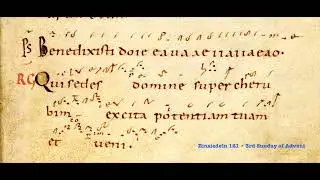 Ps Benedixisti doie eaua ae iiaiiaeao.
RG Qui sedes domine super cheru
bim excita potentiam tuam
et veni.
Einsiedeln 121 - 3rd Sunday of Advent